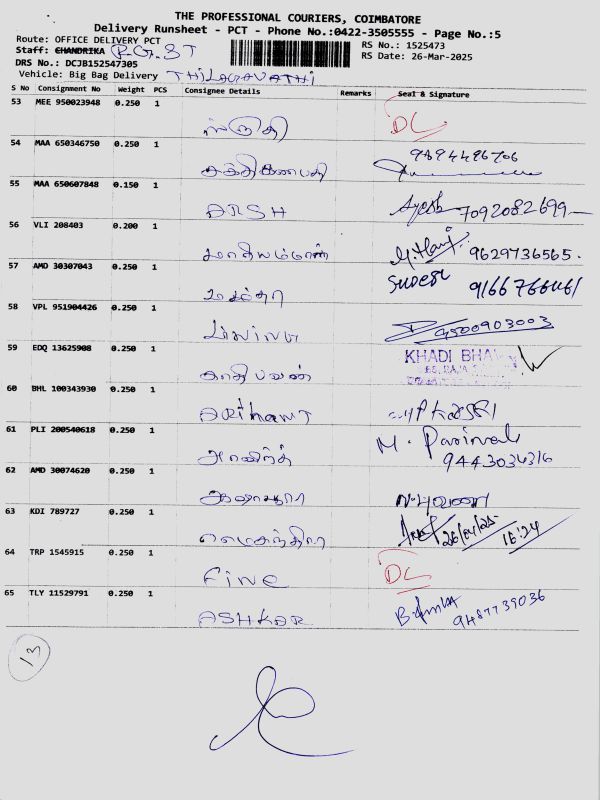 THE PROFESSIONAL COURIERS, COIMBATORE
Delivery Runsheet - PCT - Phone No.:0422-3505555 - Page No.:5
Route: OFFICE DELIVERY PCT
RS No.: 1525473
Staff: CHANDRIKA R.G. ST
RS Date: 26-Mar-2025
DRS No.: DCJB152547305
Vehicle: Big Bag Delivery THILAGAVATHI
S No Consignment No Weight PCS Consignee Details Remarks Seal & Signature
53 MEE 950023948 0.250 1
ஸ்ருதி DL
54 MAA 650346750 0.250 1
சக்திகணபதி 9894496706
55 MAA 650607848 0.150 1
ARSH Ayesh 7092082699
56 VLI 208403 0.200 1
9629736565.
57 AMD 30307043 0.250 1
Suresh
58 VPL 951904426 0.250 1
9500903003
59 EDQ 13625908 0.250 1
காதிபவன் KHADI BHA
60 BHL 100343930 0.250 1
ARIHANT
61 PLI 200540618 0.250 1
அரவிந்த் M. Parimal
9443034316
62 AMD 30074620 0.250 1
63 KDI 789727 0.250 1
16:24
64 TRP 1545915 0.250 1
FINE DL
65 TLY 11529791 0.250 1
ASHKAR 9487739036
13